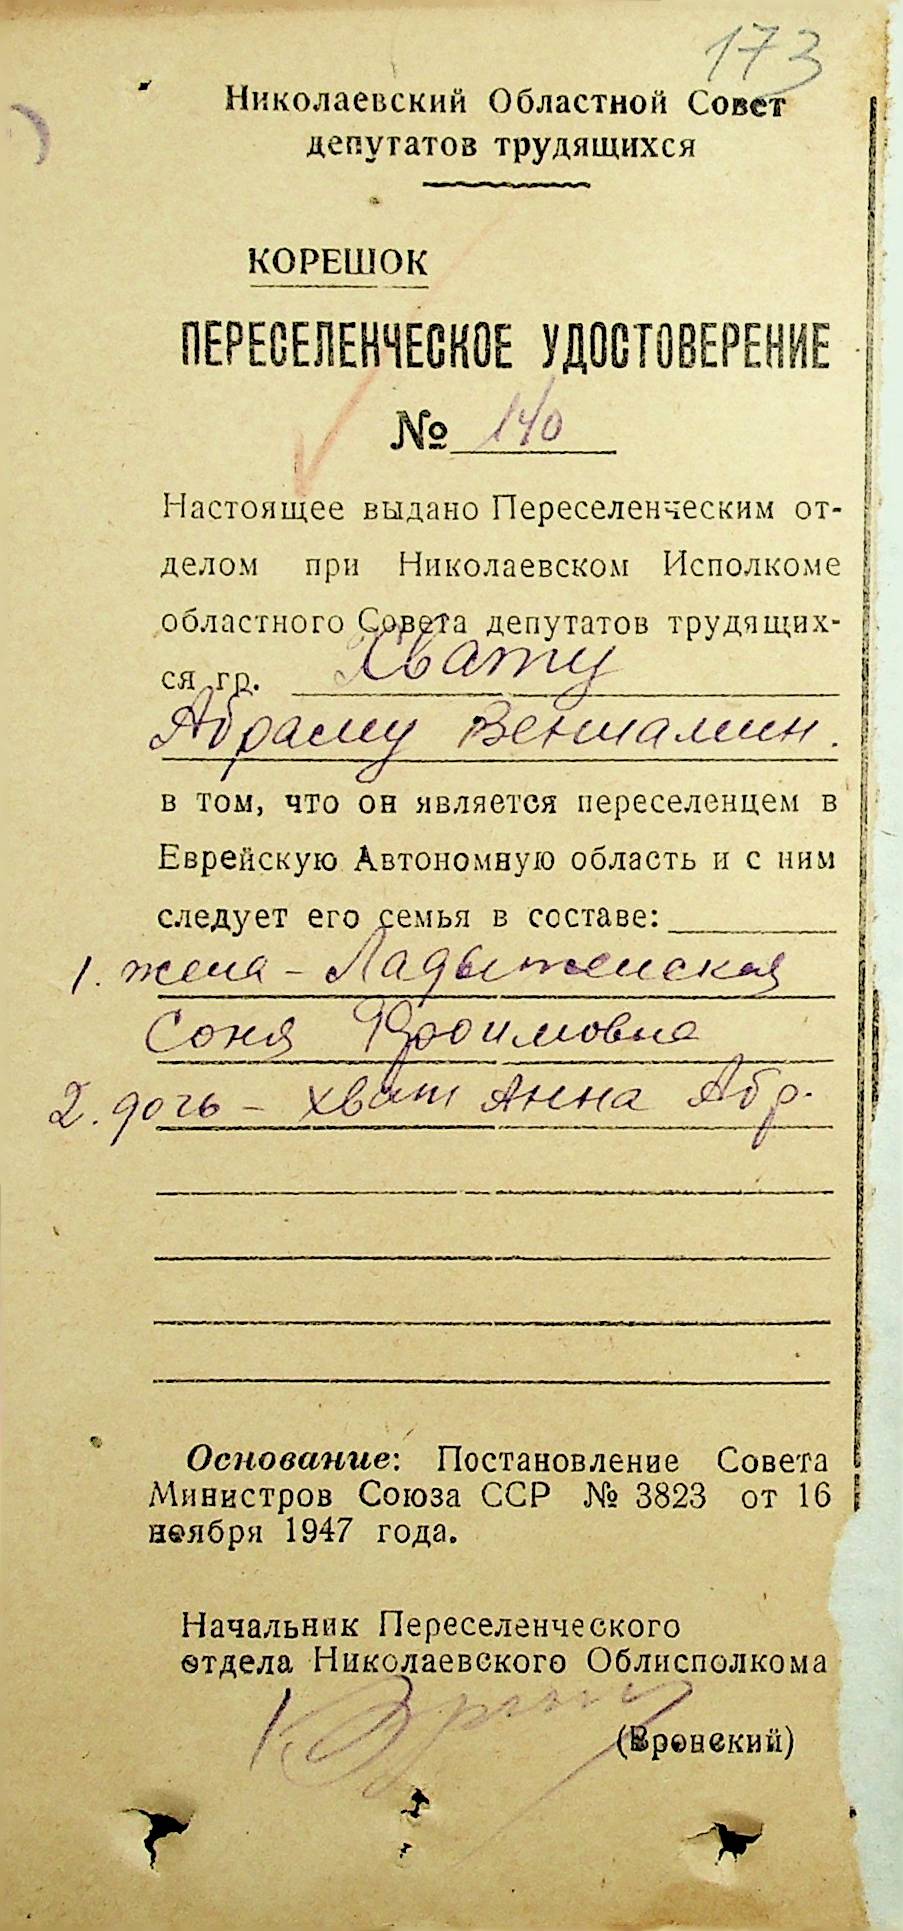 173
Николаевский Областной Совет
депутатов трудящихся
КОРЕШОК
ПЕРЕСЕЛЕНЧЕСКОЕ УДОСТОВЕРЕНИЕ
№ 140
Настоящее выдано Переселенческим от-
делом при Николаевском Исполкоме
областного Совета депутатов трудящих-
ся гр. Хвату
Абраму Вениамин.
в том, что он является переселенцем в
Еврейскую Автономную область и с ним
следует его семья в составе:
1. жена - Ладыженская
Соня Фроимовна
2. дочь - Хват Анна Абр.
Основание: Постановление Совета
Министров Союза ССР № 3823 от 16
ноября 1947 года.
Начальник Переселенческого
отдела Николаевского Облисполкома
(Вронский)